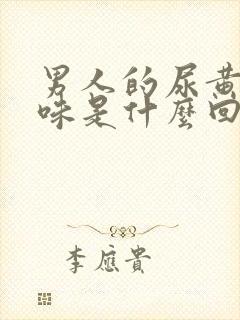 男人的尿黄
味是什麼回
李應貴